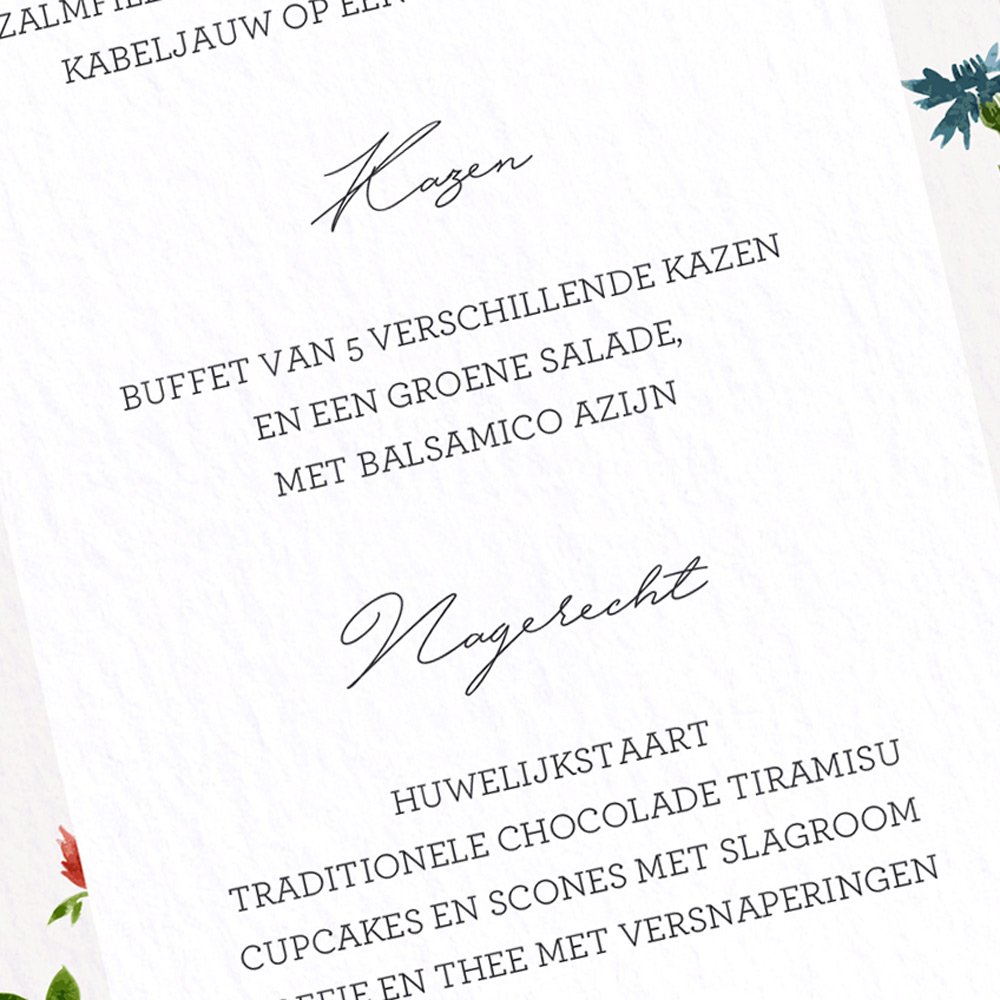 KABELJAUW OP EEN
Kazen
BUFFET VAN 5 VERSCHILLENDE KAZEN
EN EEN GROENE SALADE,
MET BALSAMICO AZIJN
Nagerecht
HUWELIJKSTAART
TRADITIONELE CHOCOLADE TIRAMISU
CUPCAKES EN SCONES MET SLAGROOM
EN THEE MET VERSNAPERINGEN